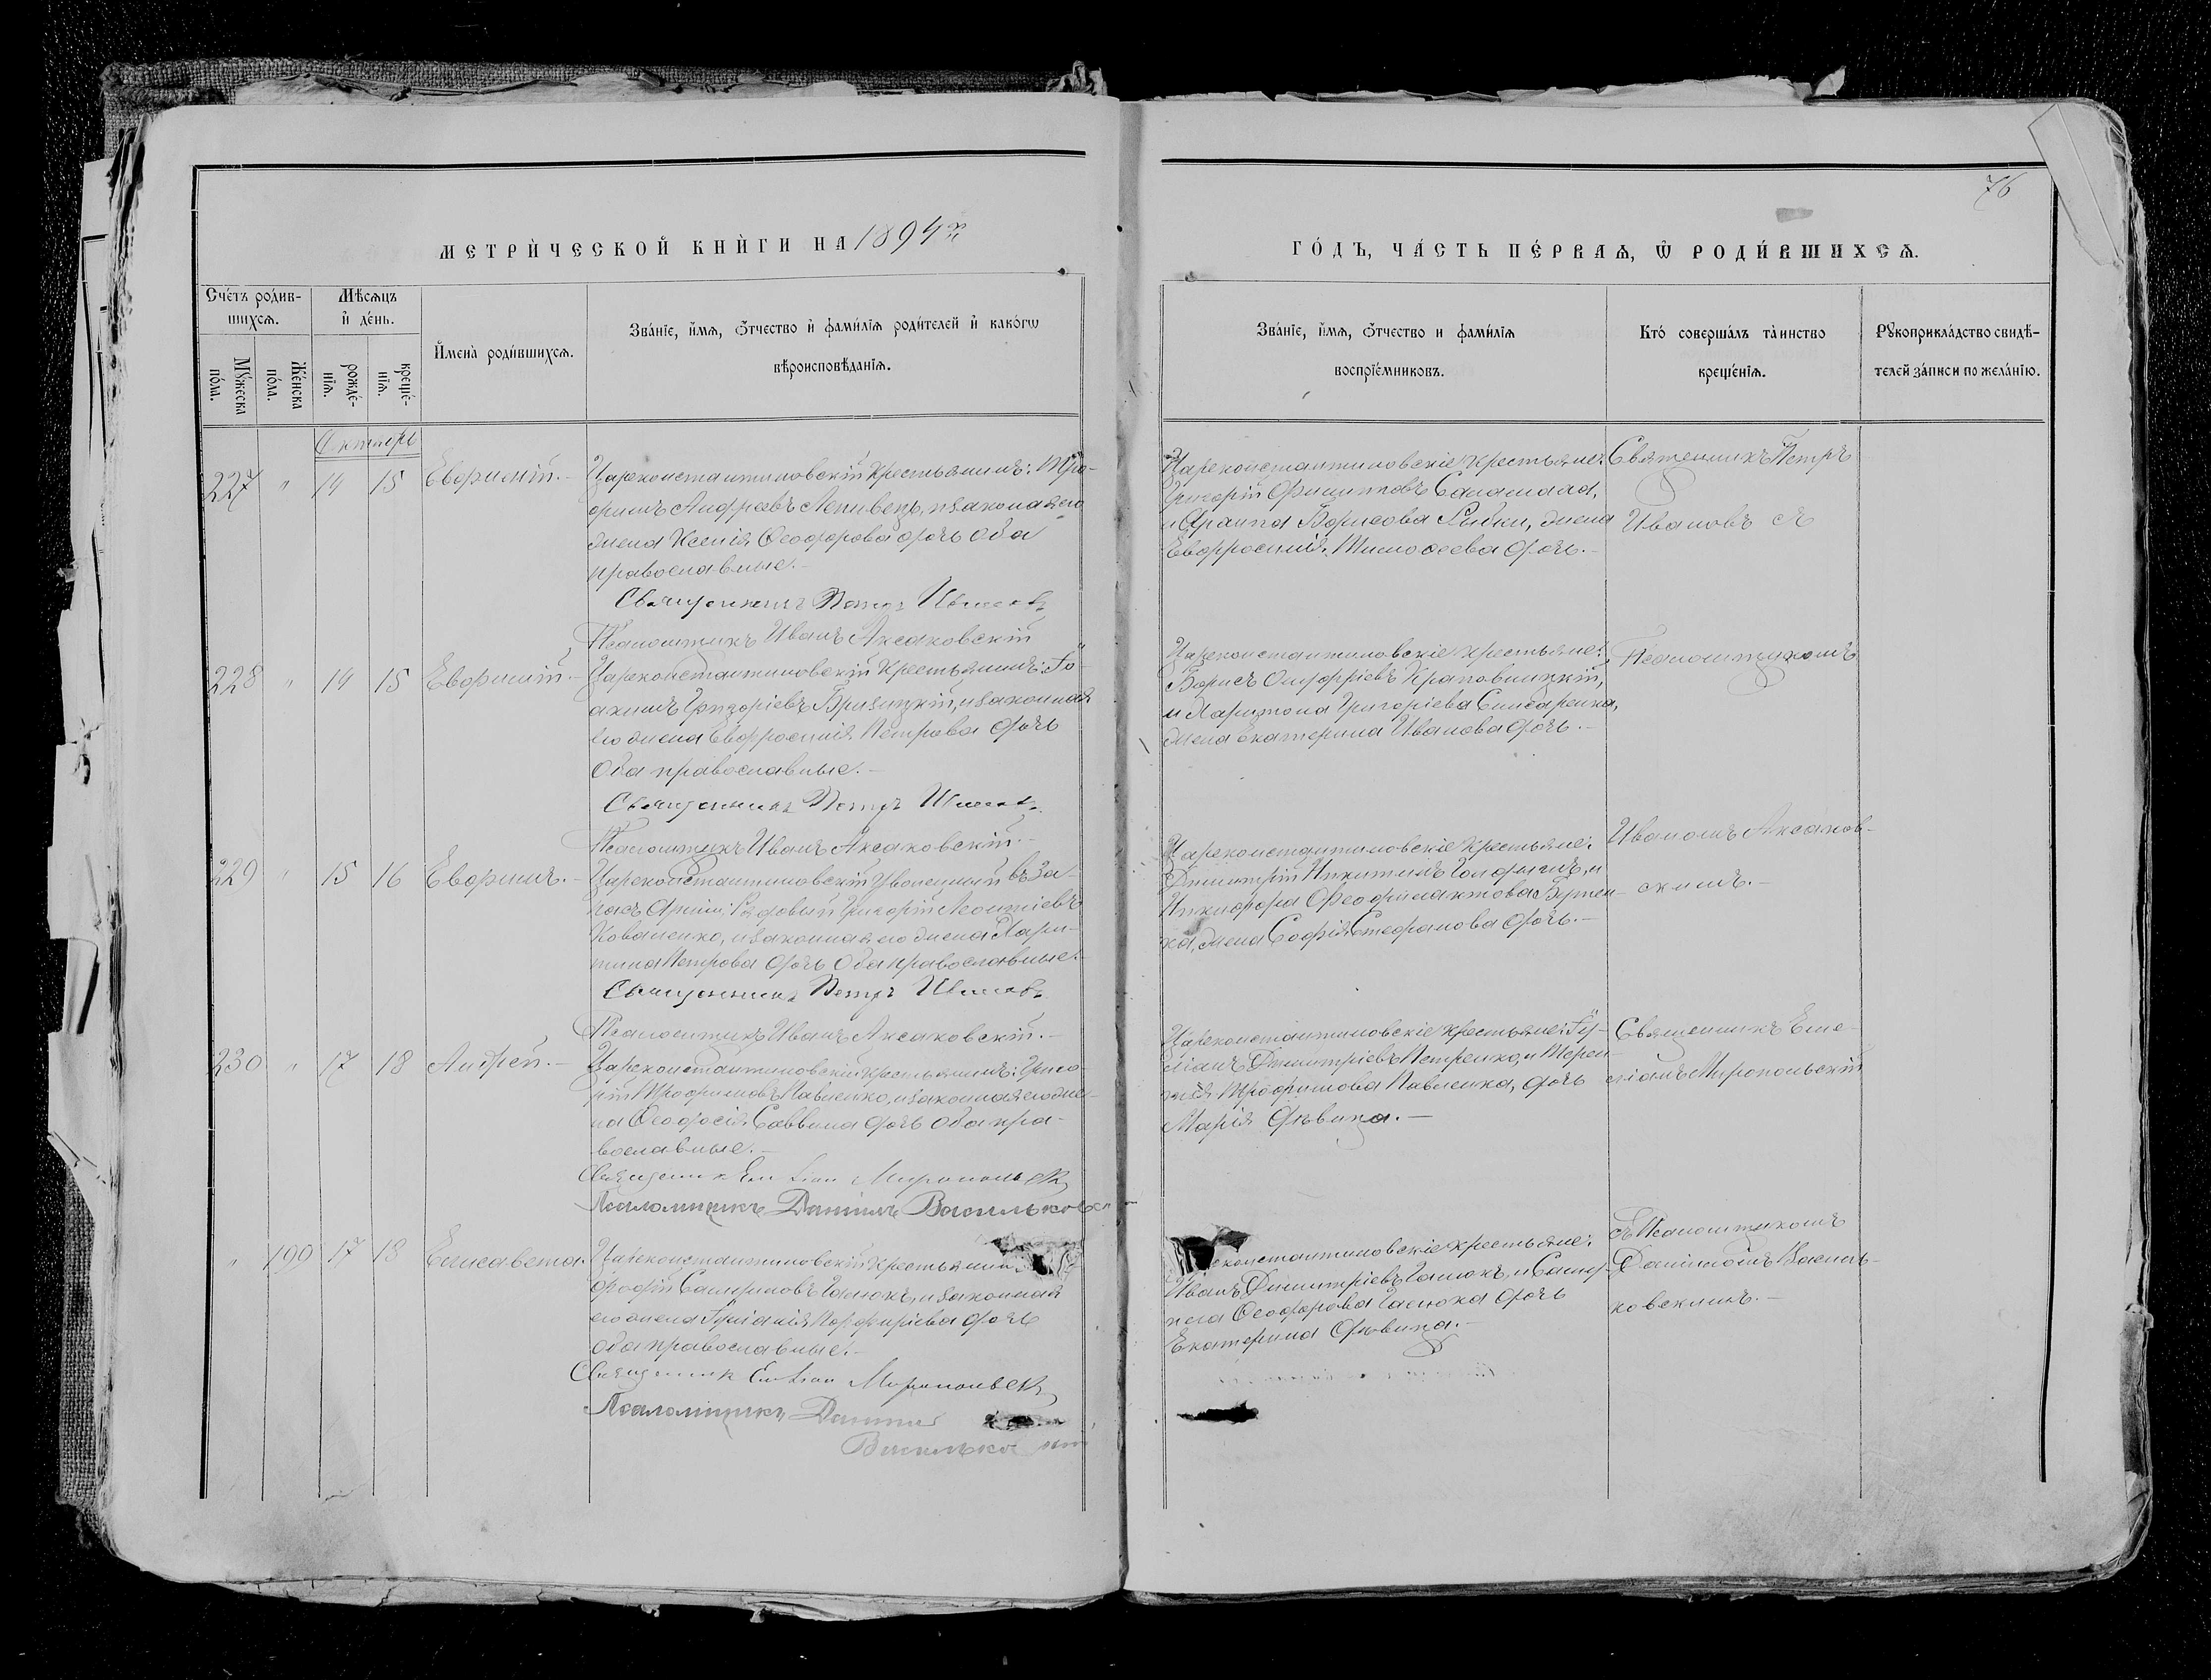 76
МЕТРИ́ЧЕСКОЙ КНИ́ГИ НА 1894й
ГО́ДЪ, ЧА́СТЬ ПЕ́РВАѦ, Ѽ РОДИ́ВШИХСѦ.
Сче́тъ роди́в-
шихсѧ.
Мꙋ́жеска по́ла.
Же́нска по́ла.
Мѣ́сѧцъ
и҆ де́нь.
рожде́-
нїѧ.
креще́-
нїѧ.
И҆мена̀ роди́вшихсѧ.
Зва́нїе, и҆́мѧ, ѻ҆́тчество и҆ фами́лїѧ роди́телей и҆ како́гѡ
вѣроисповѣ́данїѧ.
Зва́нїе, и҆́мѧ, ѻ҆́тчество и фами́лїѧ
воспрїе́мниковъ.
Кто́ соверша́лъ та̀инство
креще́нїѧ.
Рꙋкоприкла́дство свидѣ́-
телей за́писи по жела́нїю.
Октябрь
227 " 14 15 Евфимій.
Цареконстантиновскій крестьянинъ: Тро-
фимъ Андреевъ Лепивецъ, и законная его
жена Ксенія Ѳеодорова дочь оба
православные.
Священникъ Петръ Ивановъ
Псаломщикъ Иванъ Аксаковскій
Цареконстантиновскіе крестьяне:
Григорій Филипповъ
и Архипа Борисова Рибки, жена
Евфросинія Тимоѳеева дочь.
Священникъ Петръ
Ивановъ съ
228 " 14 15 Евфимій.
Цареконстантиновскій крестьянинъ: Іо-
акимъ Григоріевъ Бризицкій, и законная
его жена Евфросинія Петрова дочь
Оба православные.
Священникъ Петръ Ивановъ
Псаломщикъ Иванъ Аксаковскій.
Цареконстантиновскіе крестьяне:
Борисъ Онуфріевъ Краповницкій,
и Харитона Григоріева Слисаренка,
жена Екатерина Иванова дочь.
Псаломщикомъ
229 " 15 16 Евфимъ.
Цареконстантиновскій Уволенный въ За-
пасъ Арміи; Рядовый Григорій Леонтіевъ
Коваленко, и законная его жена Хари-
тина Петрова дочь Оба православные.
Священникъ Петръ Ивановъ
Псаломщикъ Иванъ Аксаковскій.
Цареконстантиновскіе крестьяне:
Димитрій Никитинъ и
Никифора Феофилактова Бутен-
ка, жена Софія Стефанова дочь.
Иваномъ Аксаков-
скимъ.
230 " 17 18 Андрей.
Цареконстантиновскій крестьянинъ: Григо-
рій Трофимовъ Павленко, и законная его же-
на Ѳеодосія Саввина дочь оба пра-
вославные.
Священникъ Емиліан Миропольскій
Псаломщикъ Даніилъ Васильковск
Цареконстантиновскіе крестьяне: Іу-
ліанъ Димитріевъ Петренко, и Терен-
тія Трофимова Павленка, дочь
Марія дѣвица.
Священникъ Еми-
ліанъ Миропольскій
" 199 17 18 Елисавета.
Цареконстантиновскій крестьянин
Самуиловъ Галюкъ, и законная
его жена Іуліанія Порфиріева дочь
оба православные.
Священник Емиліан Миропольскій
Псаломщикъ Даніил
Васильков
констант­иновскіе крестьяне:
Иванъ Димитріевъ Галюкъ, и Саму-
ила Ѳеодорова Галюка дочь
Екатерина дѣвица.
съ Псаломщикомъ
Даніиломъ Василь-
ковскимъ.